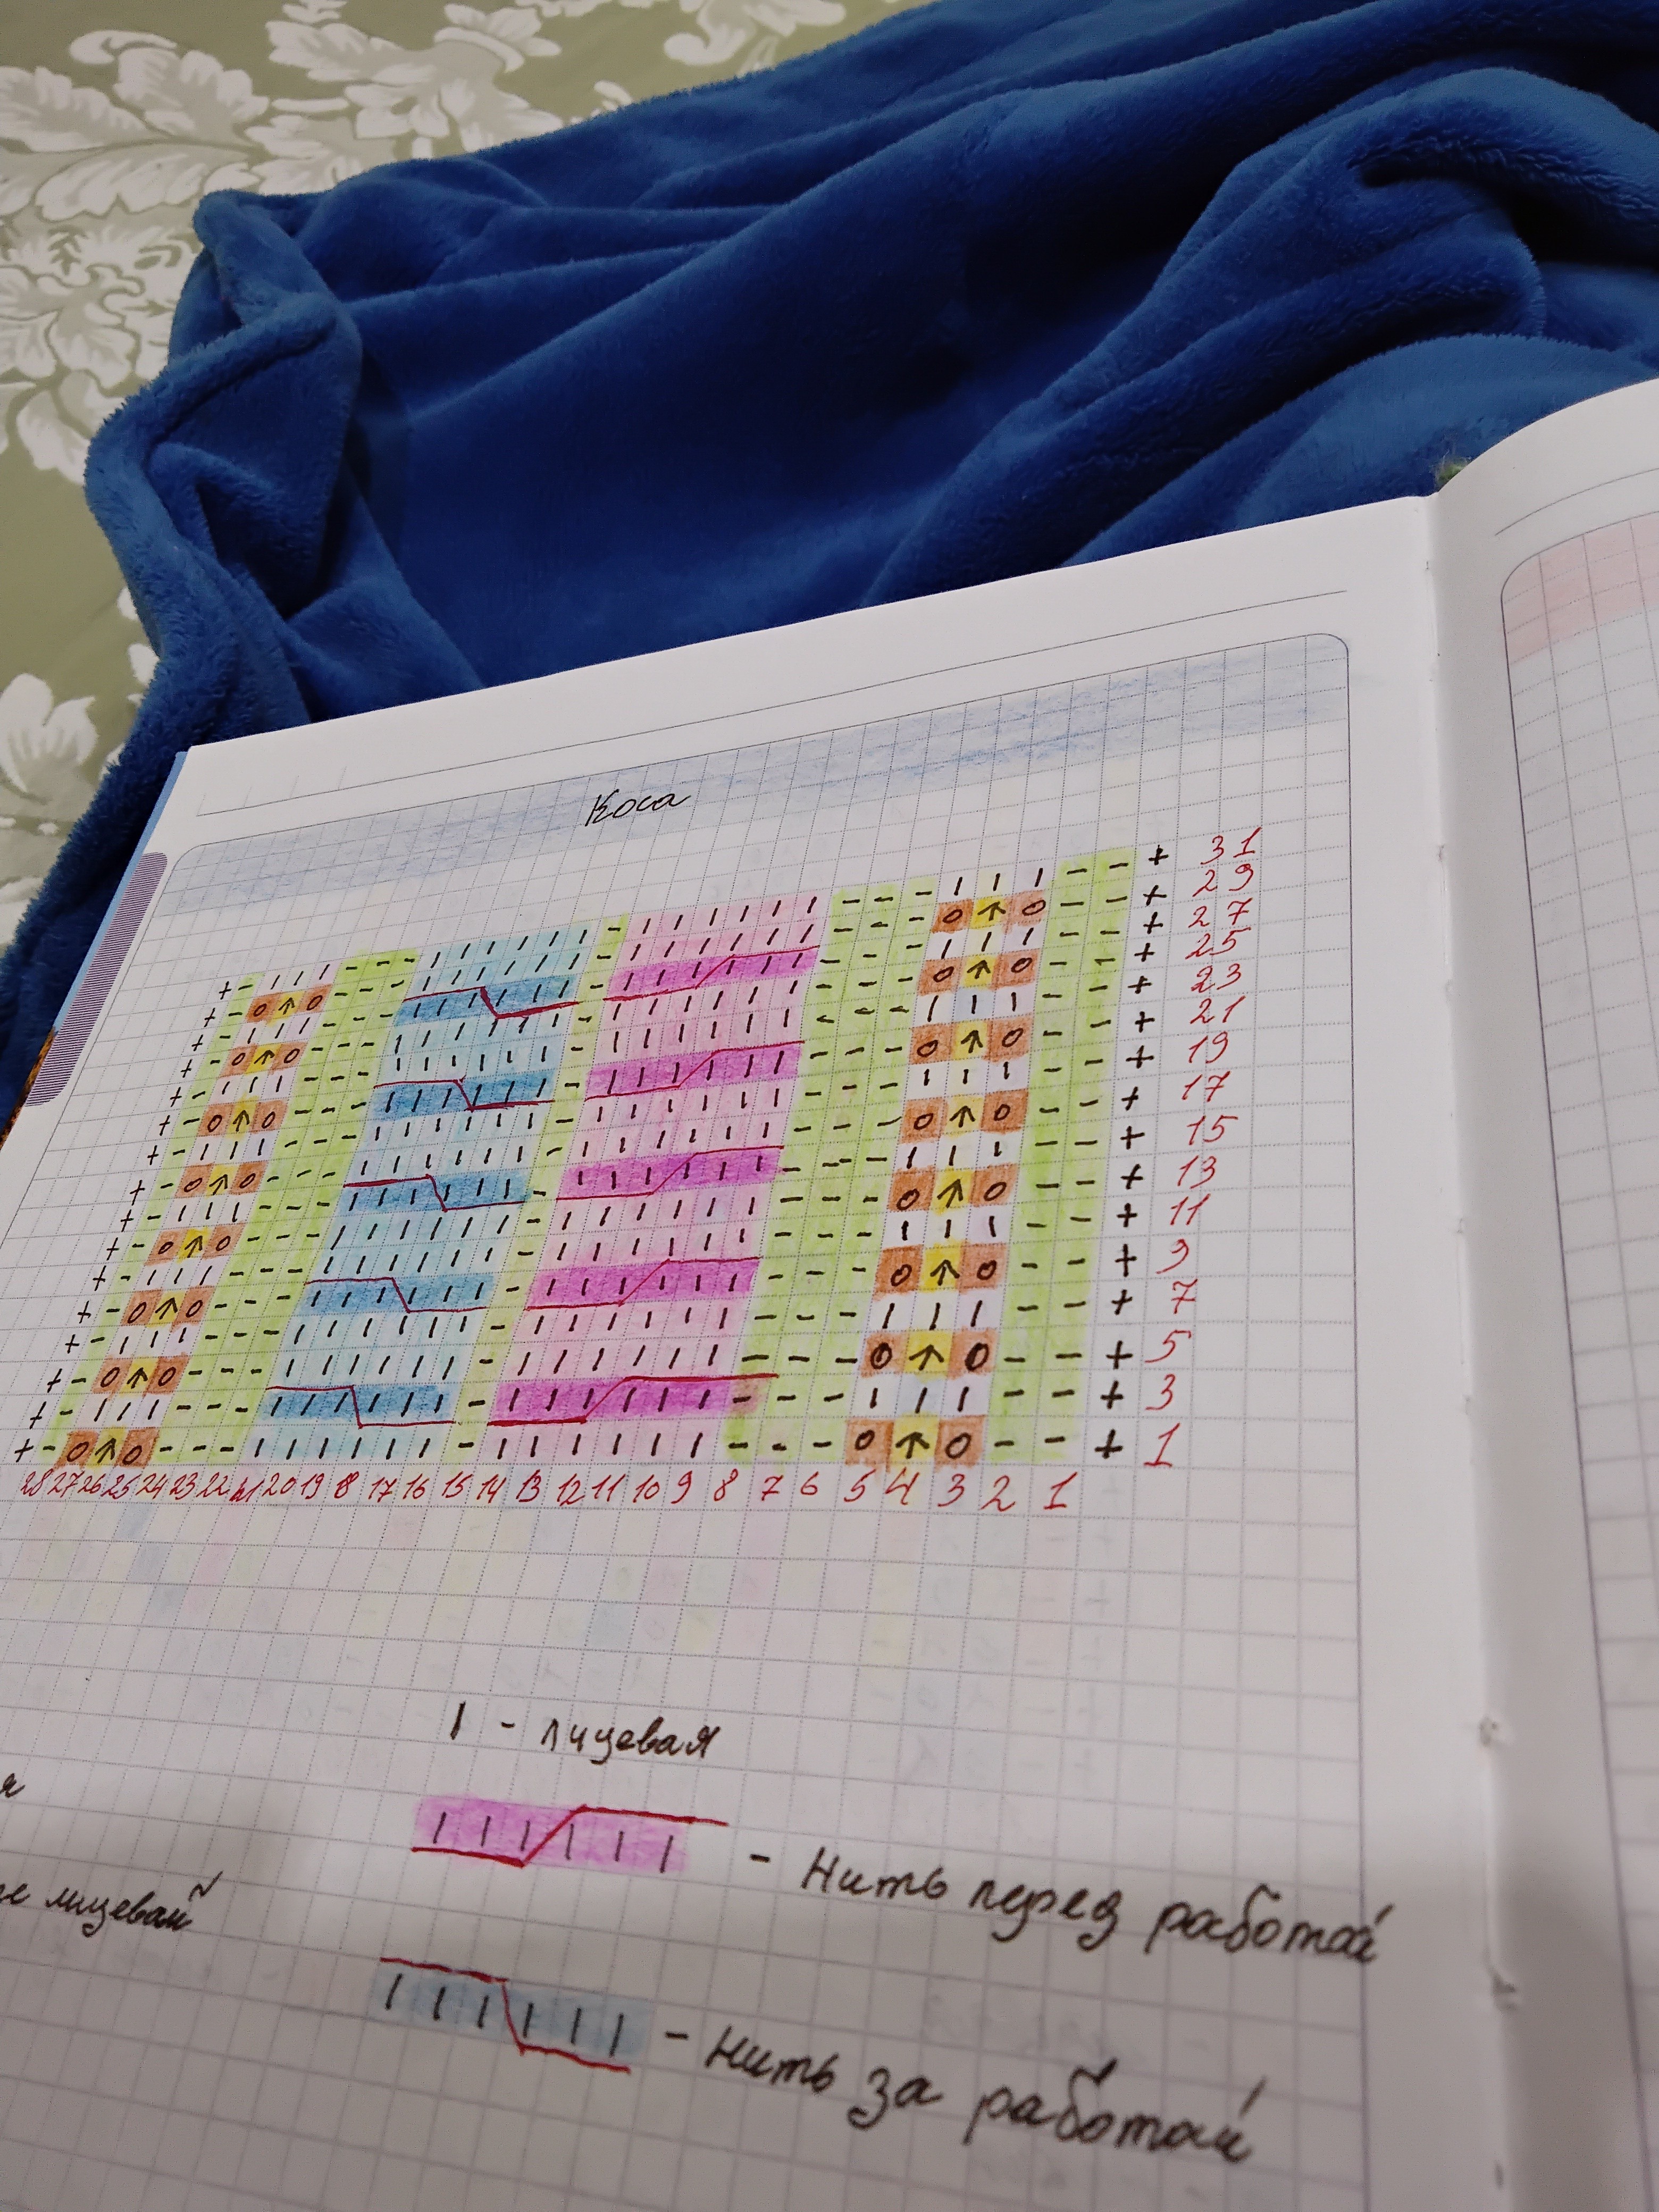 Коса
+ - | | | - - - | | | | | | - | | | | | | - - - | | | - - + 31
+ - O ↑ O - - - | | | | | | - | | | | | | - - - O ↑ O - - + 29
+ - | | | - - - | | | | | | - | | | | | | - - - | | | - - + 27
+ - O ↑ O - - - | | | | | | - | | | | | | - - - O ↑ O - - + 25
+ - | | | - - - | | | | | | - | | | | | | - - - | | | - - + 23
+ - O ↑ O - - - | | | | | | - | | | | | | - - - O ↑ O - - + 21
+ - | | | - - - | | | | | | - | | | | | | - - - | | | - - + 19
+ - O ↑ O - - - | | | | | | - | | | | | | - - - O ↑ O - - + 17
+ - | | | - - - | | | | | | - | | | | | | - - - | | | - - + 15
+ - O ↑ O - - - | | | | | | - | | | | | | - - - O ↑ O - - + 13
+ - | | | - - - | | | | | | - | | | | | | - - - | | | - - + 11
+ - O ↑ O - - - | | | | | | - | | | | | | - - - O ↑ O - - + 9
+ - | | | - - - | | | | | | - | | | | | | - - - | | | - - + 7
+ - O ↑ O - - - | | | | | | - | | | | | | - - - O ↑ O - - + 5
+ - | | | - - - | | | | | | - | | | | | | - - - | | | - - + 3
+ - O ↑ O - - - | | | | | | - | | | | | | - - - O ↑ O - - + 1
28 27 26 25 24 23 22 21 20 19 18 17 16 15 14 13 12 11 10 9 8 7 6 5 4 3 2 1
| - лицевая
| | | | | | - Нить перед работой
лицевой
| | | | | | - Нить за работой